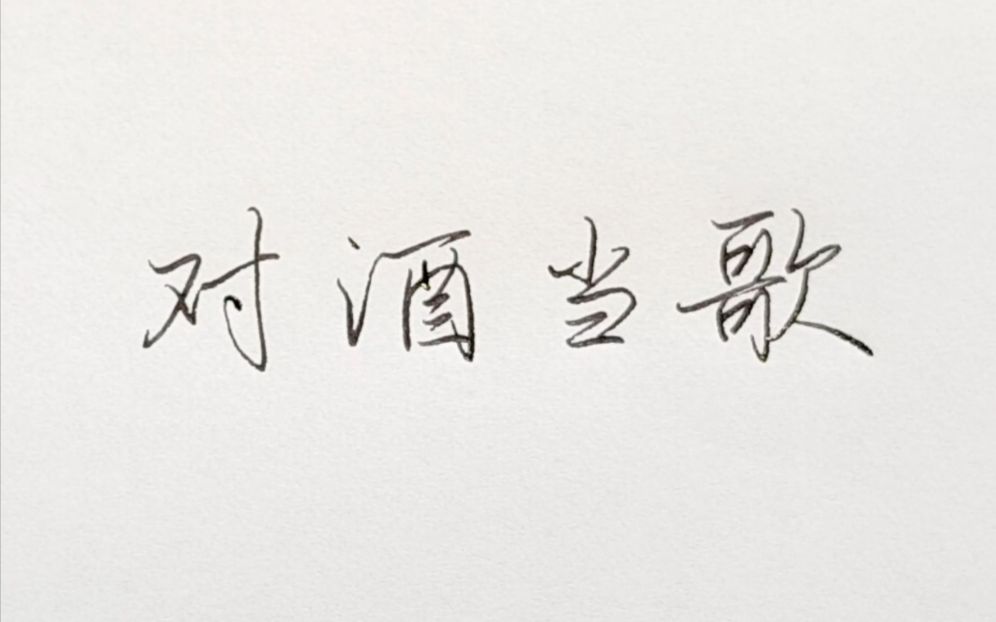 对酒当歌